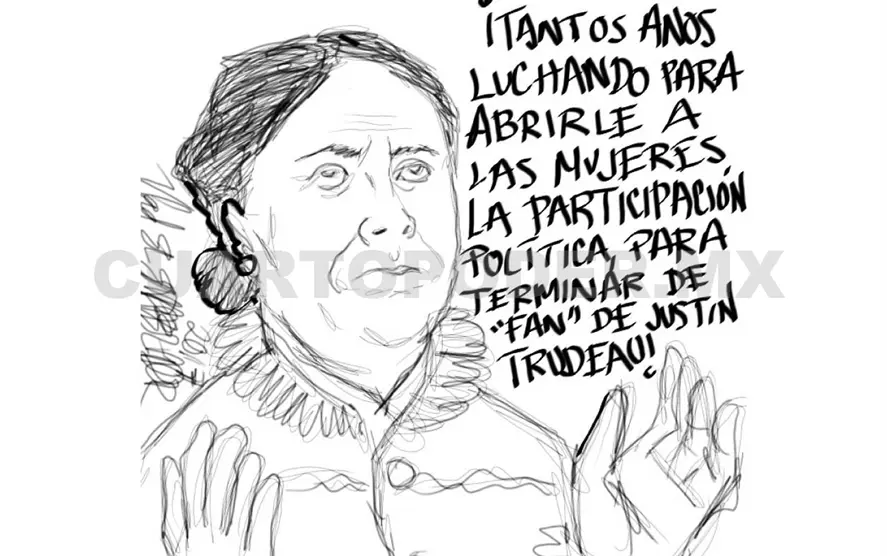 ¡TANTOS AÑOS
LUCHANDO PARA
ABRIRLE A
LAS MUJERES,
LA PARTICIPACIÓN
POLÍTICA, PARA
TERMINAR DE
"FAN" DE JUSTIN
TRUDEAU!
CUARTOPODER.MX